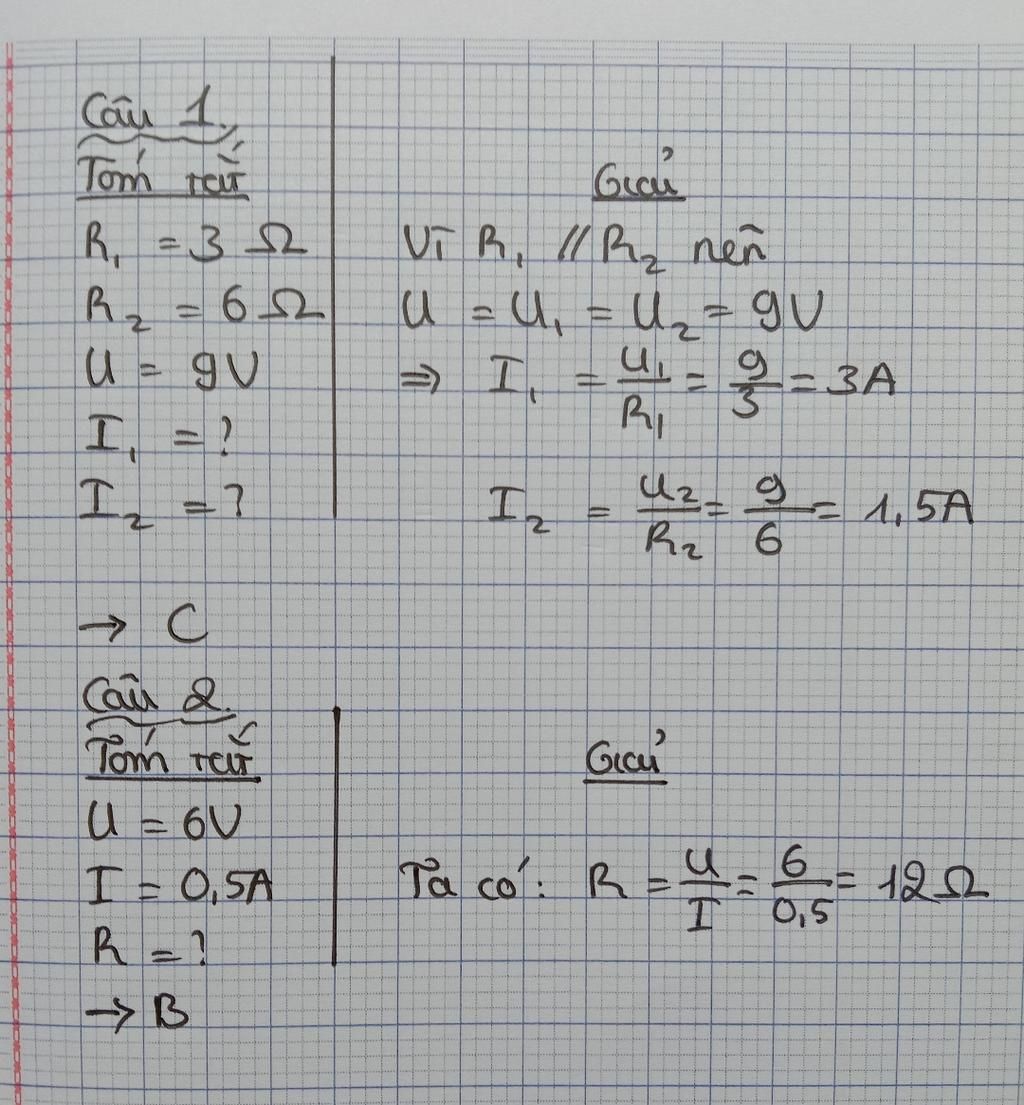 Câu 1.
Tóm tắt
R₁ = 3 Ω
R₂ = 6 Ω
U = 9V
I₁ = ?
I₂ = ?
→ C
Giải
Vì R₁ // R₂ nên
U = U₁ = U₂ = 9V
⇒ I₁ = U₁/R₁ = 9/3 = 3A
I₂ = U₂/R₂ = 9/6 = 1,5A
Câu 2.
Tóm tắt
U = 6V
I = 0,5A
R = ?
→ B
Giải
Ta có: R = U/I = 6/0,5 = 12Ω